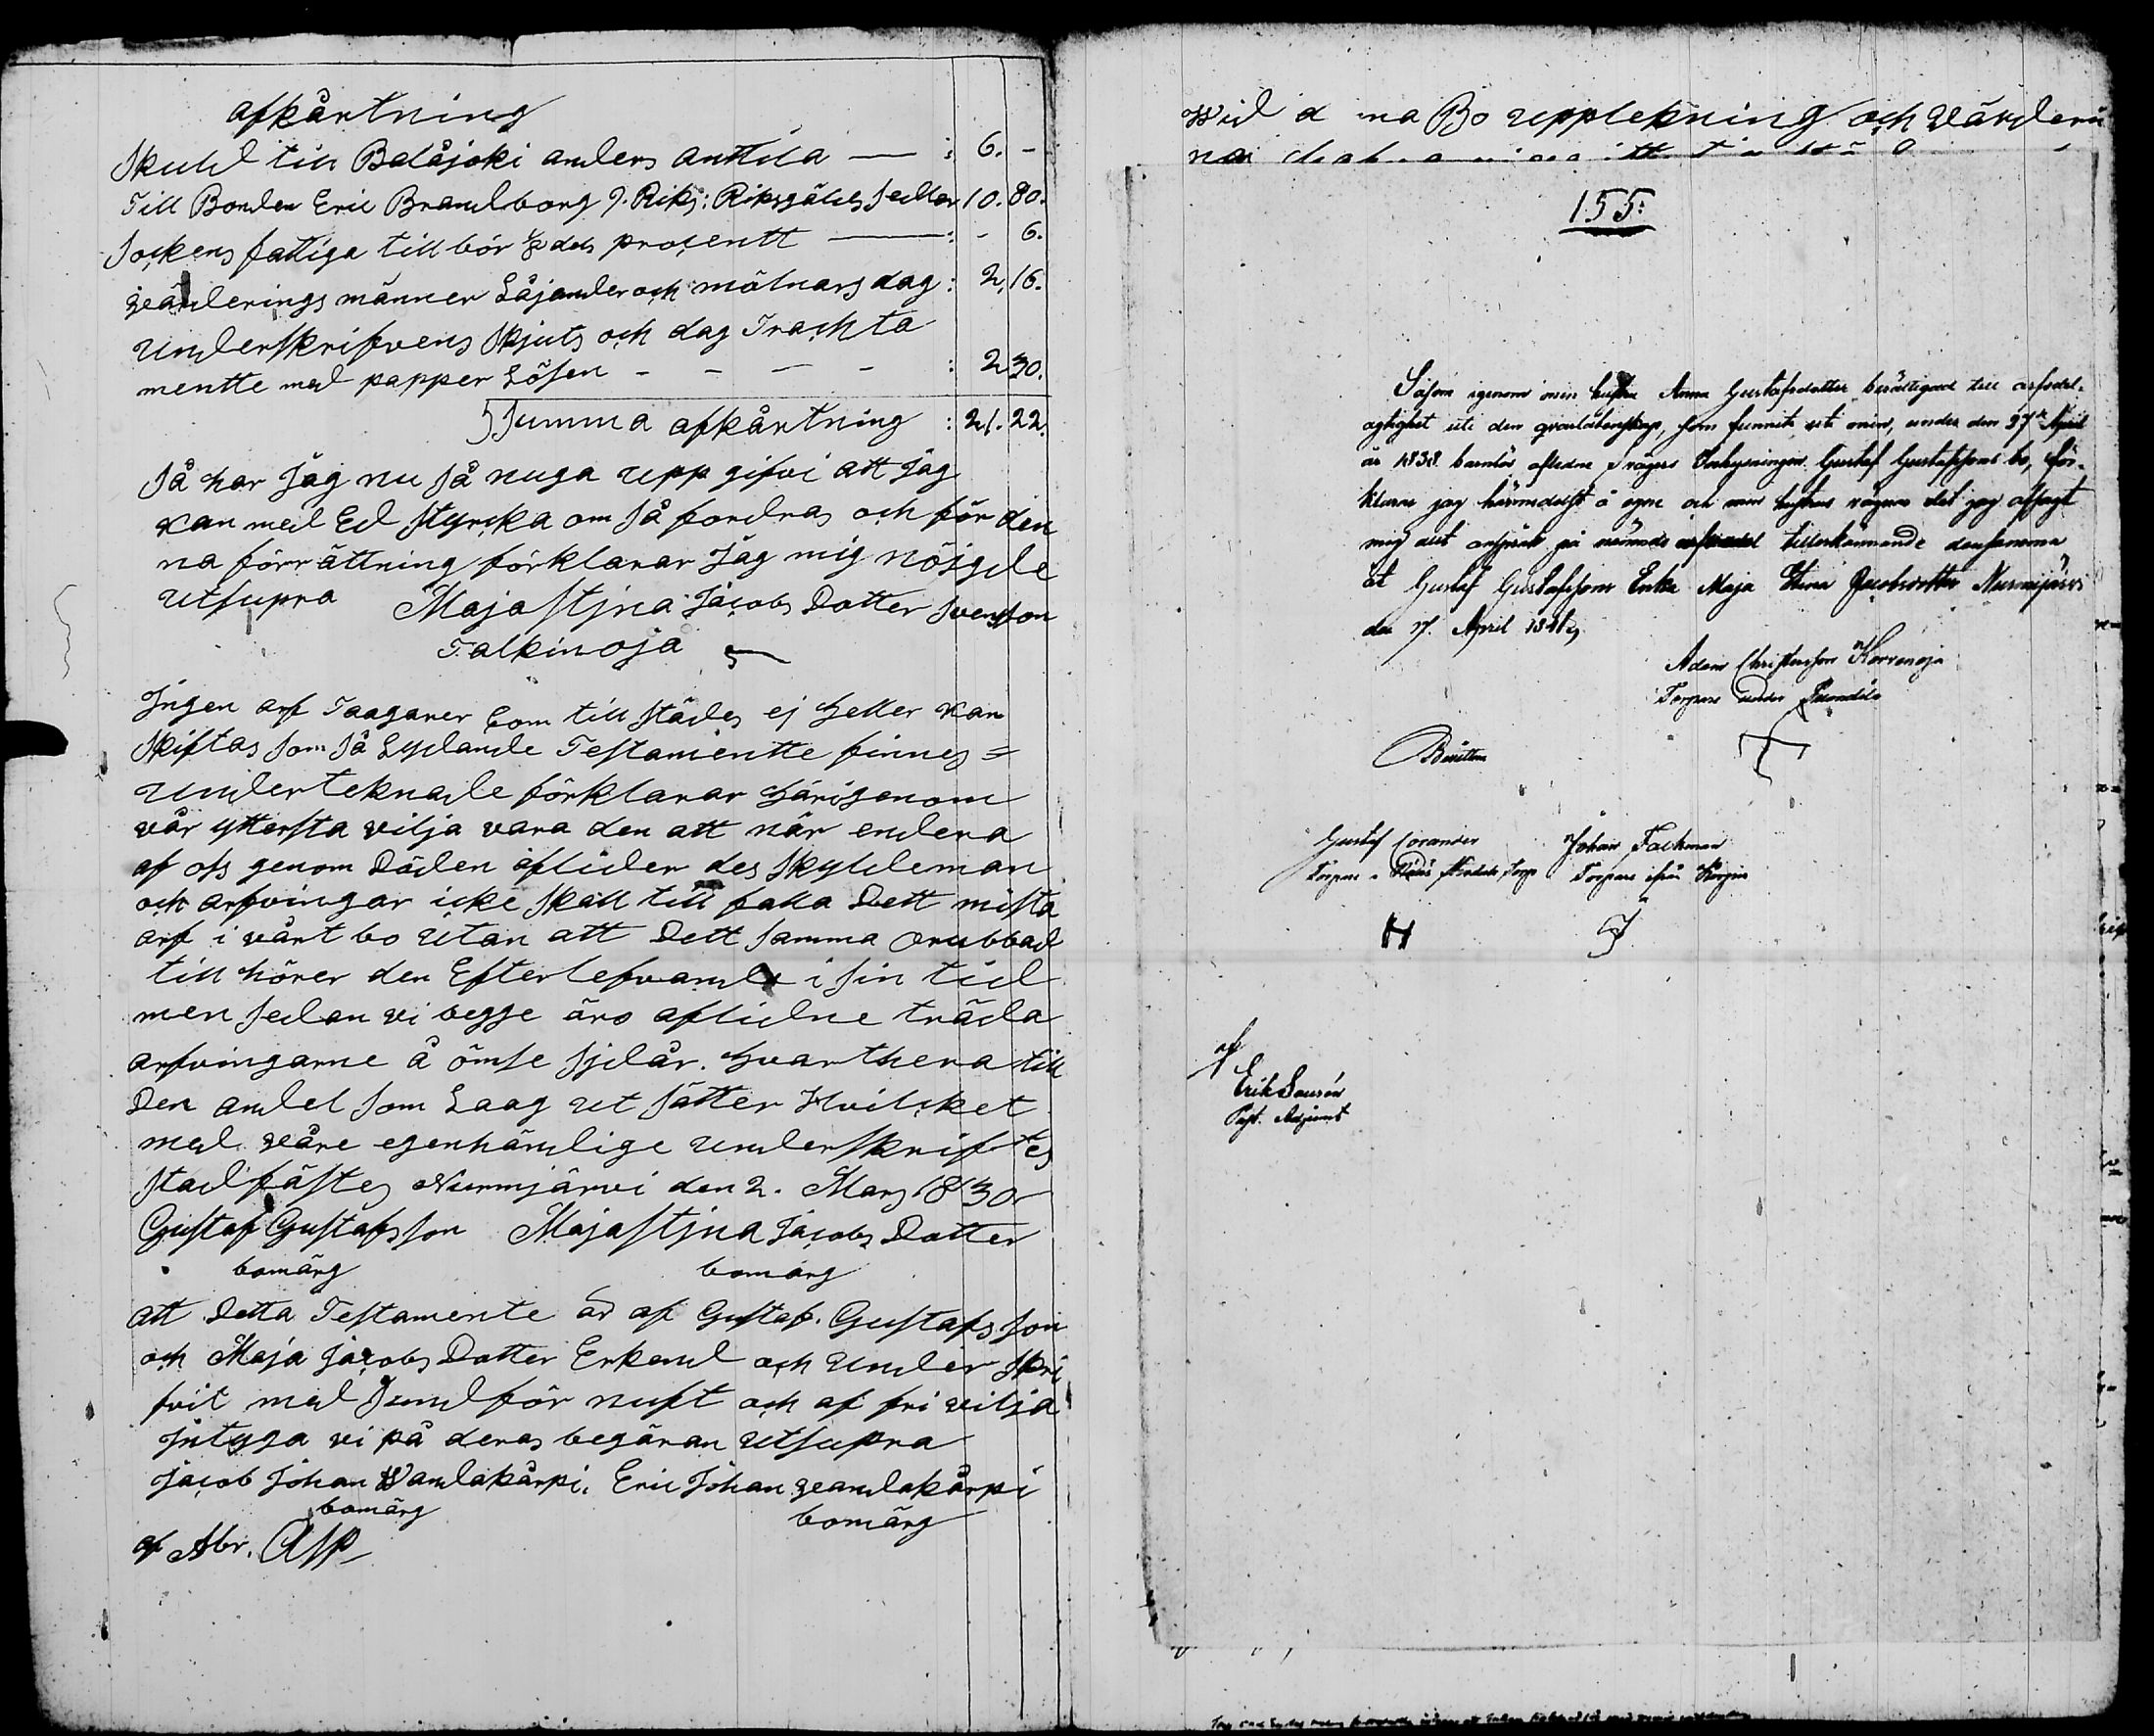 afkårtning
Skuld till Balåjoki anders anttila — : 6. -
Till Bonden Eric Brandborg 9. Riks: Riksgälds sedlar 10. 80.
Sockens fattiga till bör 1/8 dels prosentt — : - 6.
veärderings männer Låjander och mölnars dag : 2. 16.
underskrifvens Skjuts och dag Trachta
mentte med papper Lösen - - - - : 2 30.
Summa afkårtning : 21. 22.
Så har Jag nu så nuga upp gifvi att Jag
kan med Ed styrcka om så fordras och för den
na förrättning förklarar Jag mig nöjgde
utsupra Maja Stjna Jacobs Dotter Svensson
Talkinoja
Ingen arf Taaganer som till städes ej heller kan
Skiftas som så Lydande Testamentte finnes =
underteknade förklarar härigenom
vår yttersta vilja vara den att når endera
af oss genom Döden afliden des Skyldeman
och arfvingar icke skall till falla Dett mista
arf i vårt bo utan att Dett samma orubbad
till hörer den Efterlefvande i sin tid
men sedan vi begge äro aflidne träda
arfvingarne å ömse sjdår. hvarthera till
Den andel som Laag ut sätter Hvilcket
med våre egenhändlige underskriftes
stadfästes Nurmjärvi den 2. Mars 1830
Gustaf Gustafsson Maja Stjna Jacobs Dotter
bomärg bomärg
att Detta Testamente är af Gustaf. Gustafsson
och Maja Jacobs Dotter Erkend och under skri
fvit med sund för nuft och af fri vilja
Jntyga vi på deras begäran utsupra
Jacob Johan Wandakårpi. Eric Johan veandakårpi
bomärg bomärg
af Abr. Asp
Wid d na Bo upptekning och värderi
na
155:
Såsom igenom min hustru Anna Gustafsdotter berättigad till arfsdel-
agtighet uti den qvarlåtenskap, som funnits uti min, under den 27de April
år 1838 barnlös aflidne svågers Inhysningen Gustaf Gustafssons bo, för-
klarar jag härmedelst å egne och min hustrus vägnar det jag afsagt
mig alt anspråk på nämnde arfsandel tillerkännande densamma
åt Gustaf Gustafssons Enka Maja Stina Jacobsdotter Nurmijärvi
den 17. April 1841
Adam Christersson Korrenoja
Torpare under
Bevittna
Gustaf Corander Johan Fackman
Torpare Torpare ifrån
H J
af
Erik
Past. Adjunct